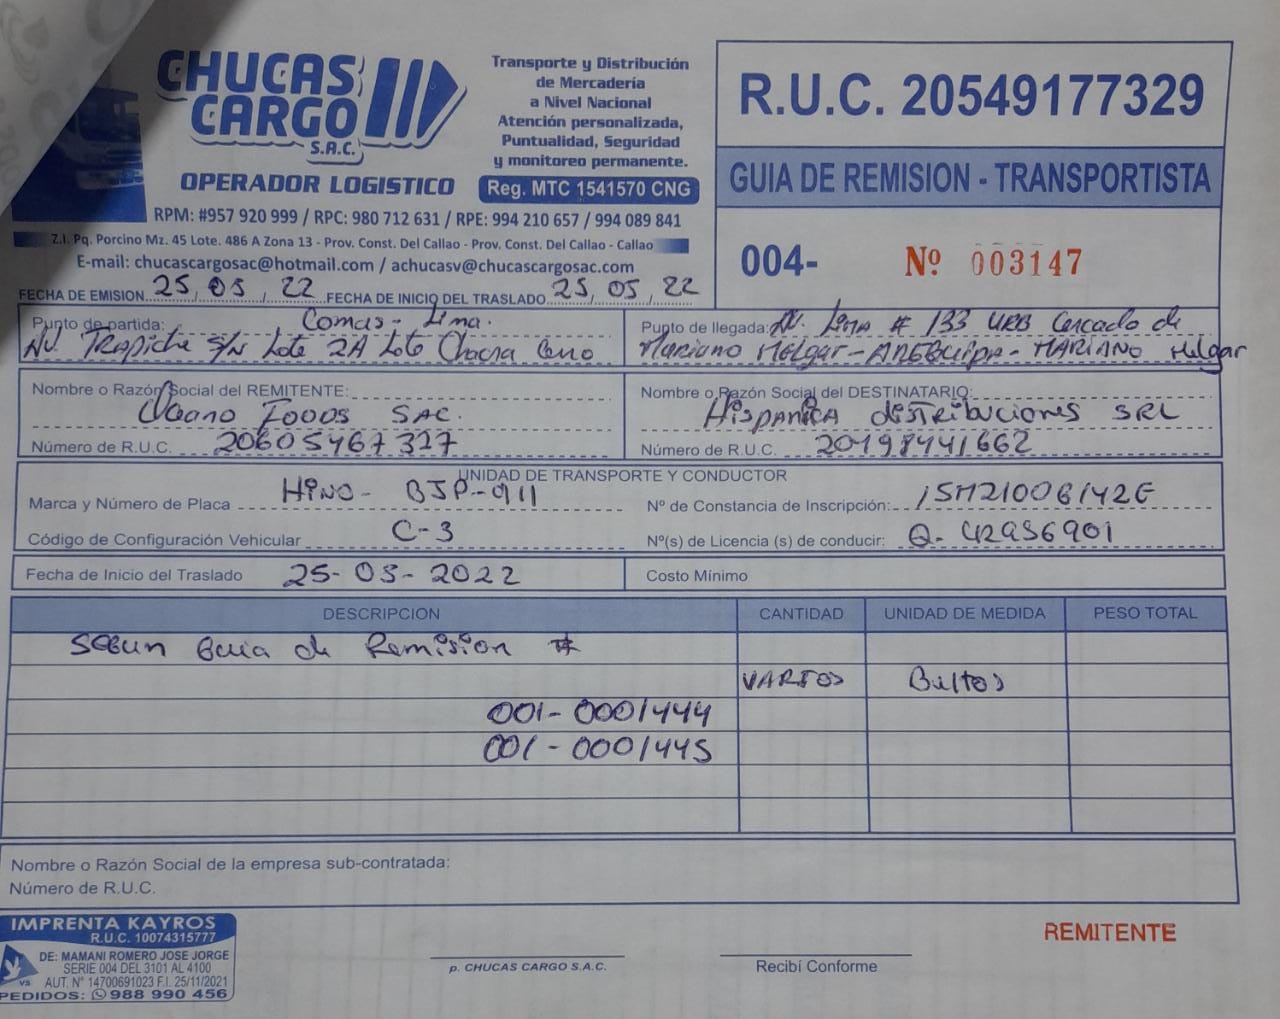 CHUCAS
CARGO
S.A.C.
OPERADOR LOGISTICO
Transporte y Distribución
de Mercadería
a Nivel Nacional
Atención personalizada,
Puntualidad, Seguridad
y monitoreo permanente.
Reg. MTC 1541570 CNG
RPM: #957 920 999 / RPC: 980 712 631 / RPE: 994 210 657 / 994 089 841
Z.I. Pq. Porcino Mz. 45 Lote. 486 A Zona 13 - Prov. Const. Del Callao - Prov. Const. Del Callao - Callao
E-mail: chucascargosac@hotmail.com / achucasv@chucascargosac.com
R.U.C. 20549177329
GUIA DE REMISION - TRANSPORTISTA
004- Nº 003147
FECHA DE EMISION 25 / 05 / 22 FECHA DE INICIO DEL TRASLADO 25 / 05 / 22
Punto de partida: Comas - Lima.
AV. TRAPiche S/N Lote 2A Lote Chacra Cerro
Punto de llegada: AV. Lima # 133 URB Cercado de
Mariano Melgar - AREQUIPA - MARIANO Melgar
Nombre o Razón Social del REMITENTE:
Oceano Foods SAC.
Número de R.U.C. 20605467327
Nombre o Razón Social del DESTINATARIO:
HispANicA distribuciones SRL
Número de R.U.C. 20198441662
UNIDAD DE TRANSPORTE Y CONDUCTOR
Marca y Número de Placa HiNO - BJP-911
Nº de Constancia de Inscripción: 15M21006142E
Código de Configuración Vehicular C-3
Nº(s) de Licencia (s) de conducir: Q- 42956901
Fecha de Inicio del Traslado 25-05-2022
Costo Mínimo
DESCRIPCION CANTIDAD UNIDAD DE MEDIDA PESO TOTAL
Segun Guia de Remision #
VARIOS Bultos
001-0001444
001-0001445
Nombre o Razón Social de la empresa sub-contratada:
Número de R.U.C.
IMPRENTA KAYROS
R.U.C. 10074315777
DE: MAMANI ROMERO JOSE JORGE
SERIE 004 DEL 3101 AL 4100
AUT. N° 14700691023 F.I. 25/11/2021
PEDIDOS: 988 990 456
p. CHUCAS CARGO S.A.C.
Recibí Conforme
REMITENTE